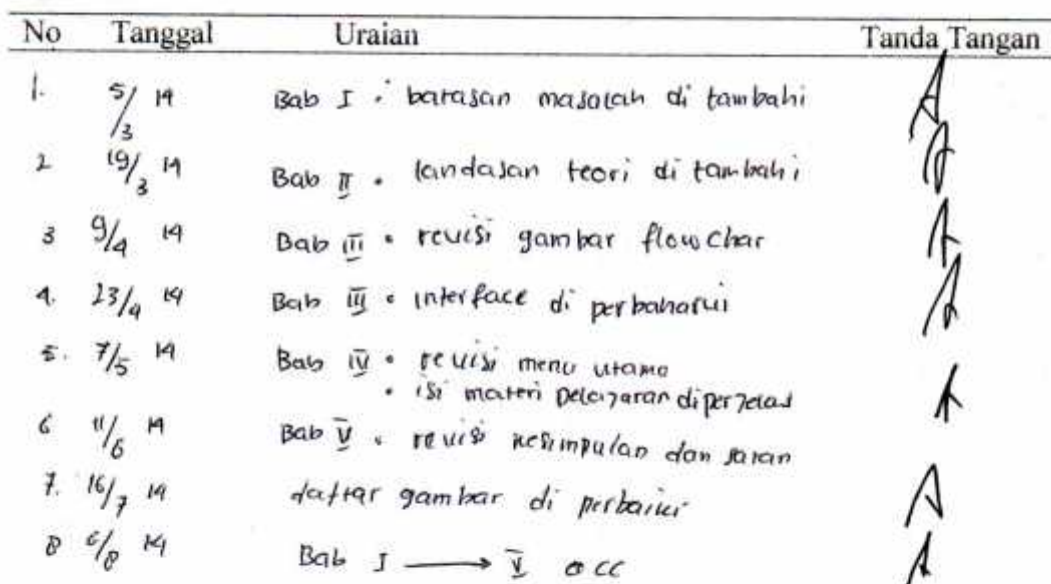 No Tanggal Uraian Tanda Tangan
1. 5/3 14 Bab I • batasan masalah di tambahi
2 19/3 14 Bab II • landasan teori di tambahi
3 9/4 14 Bab III • revisi gambar flowchar
4. 23/4 14 Bab III • interface di perbaharui
5. 7/5 14 Bab IV • revisi menu utama
• isi materi pelajaran diperjelas
6 11/6 14 Bab V • revisi kesimpulan dan saran
7. 16/7 14 daftar gambar di perbaiki
8 6/8 14 Bab I → V acc